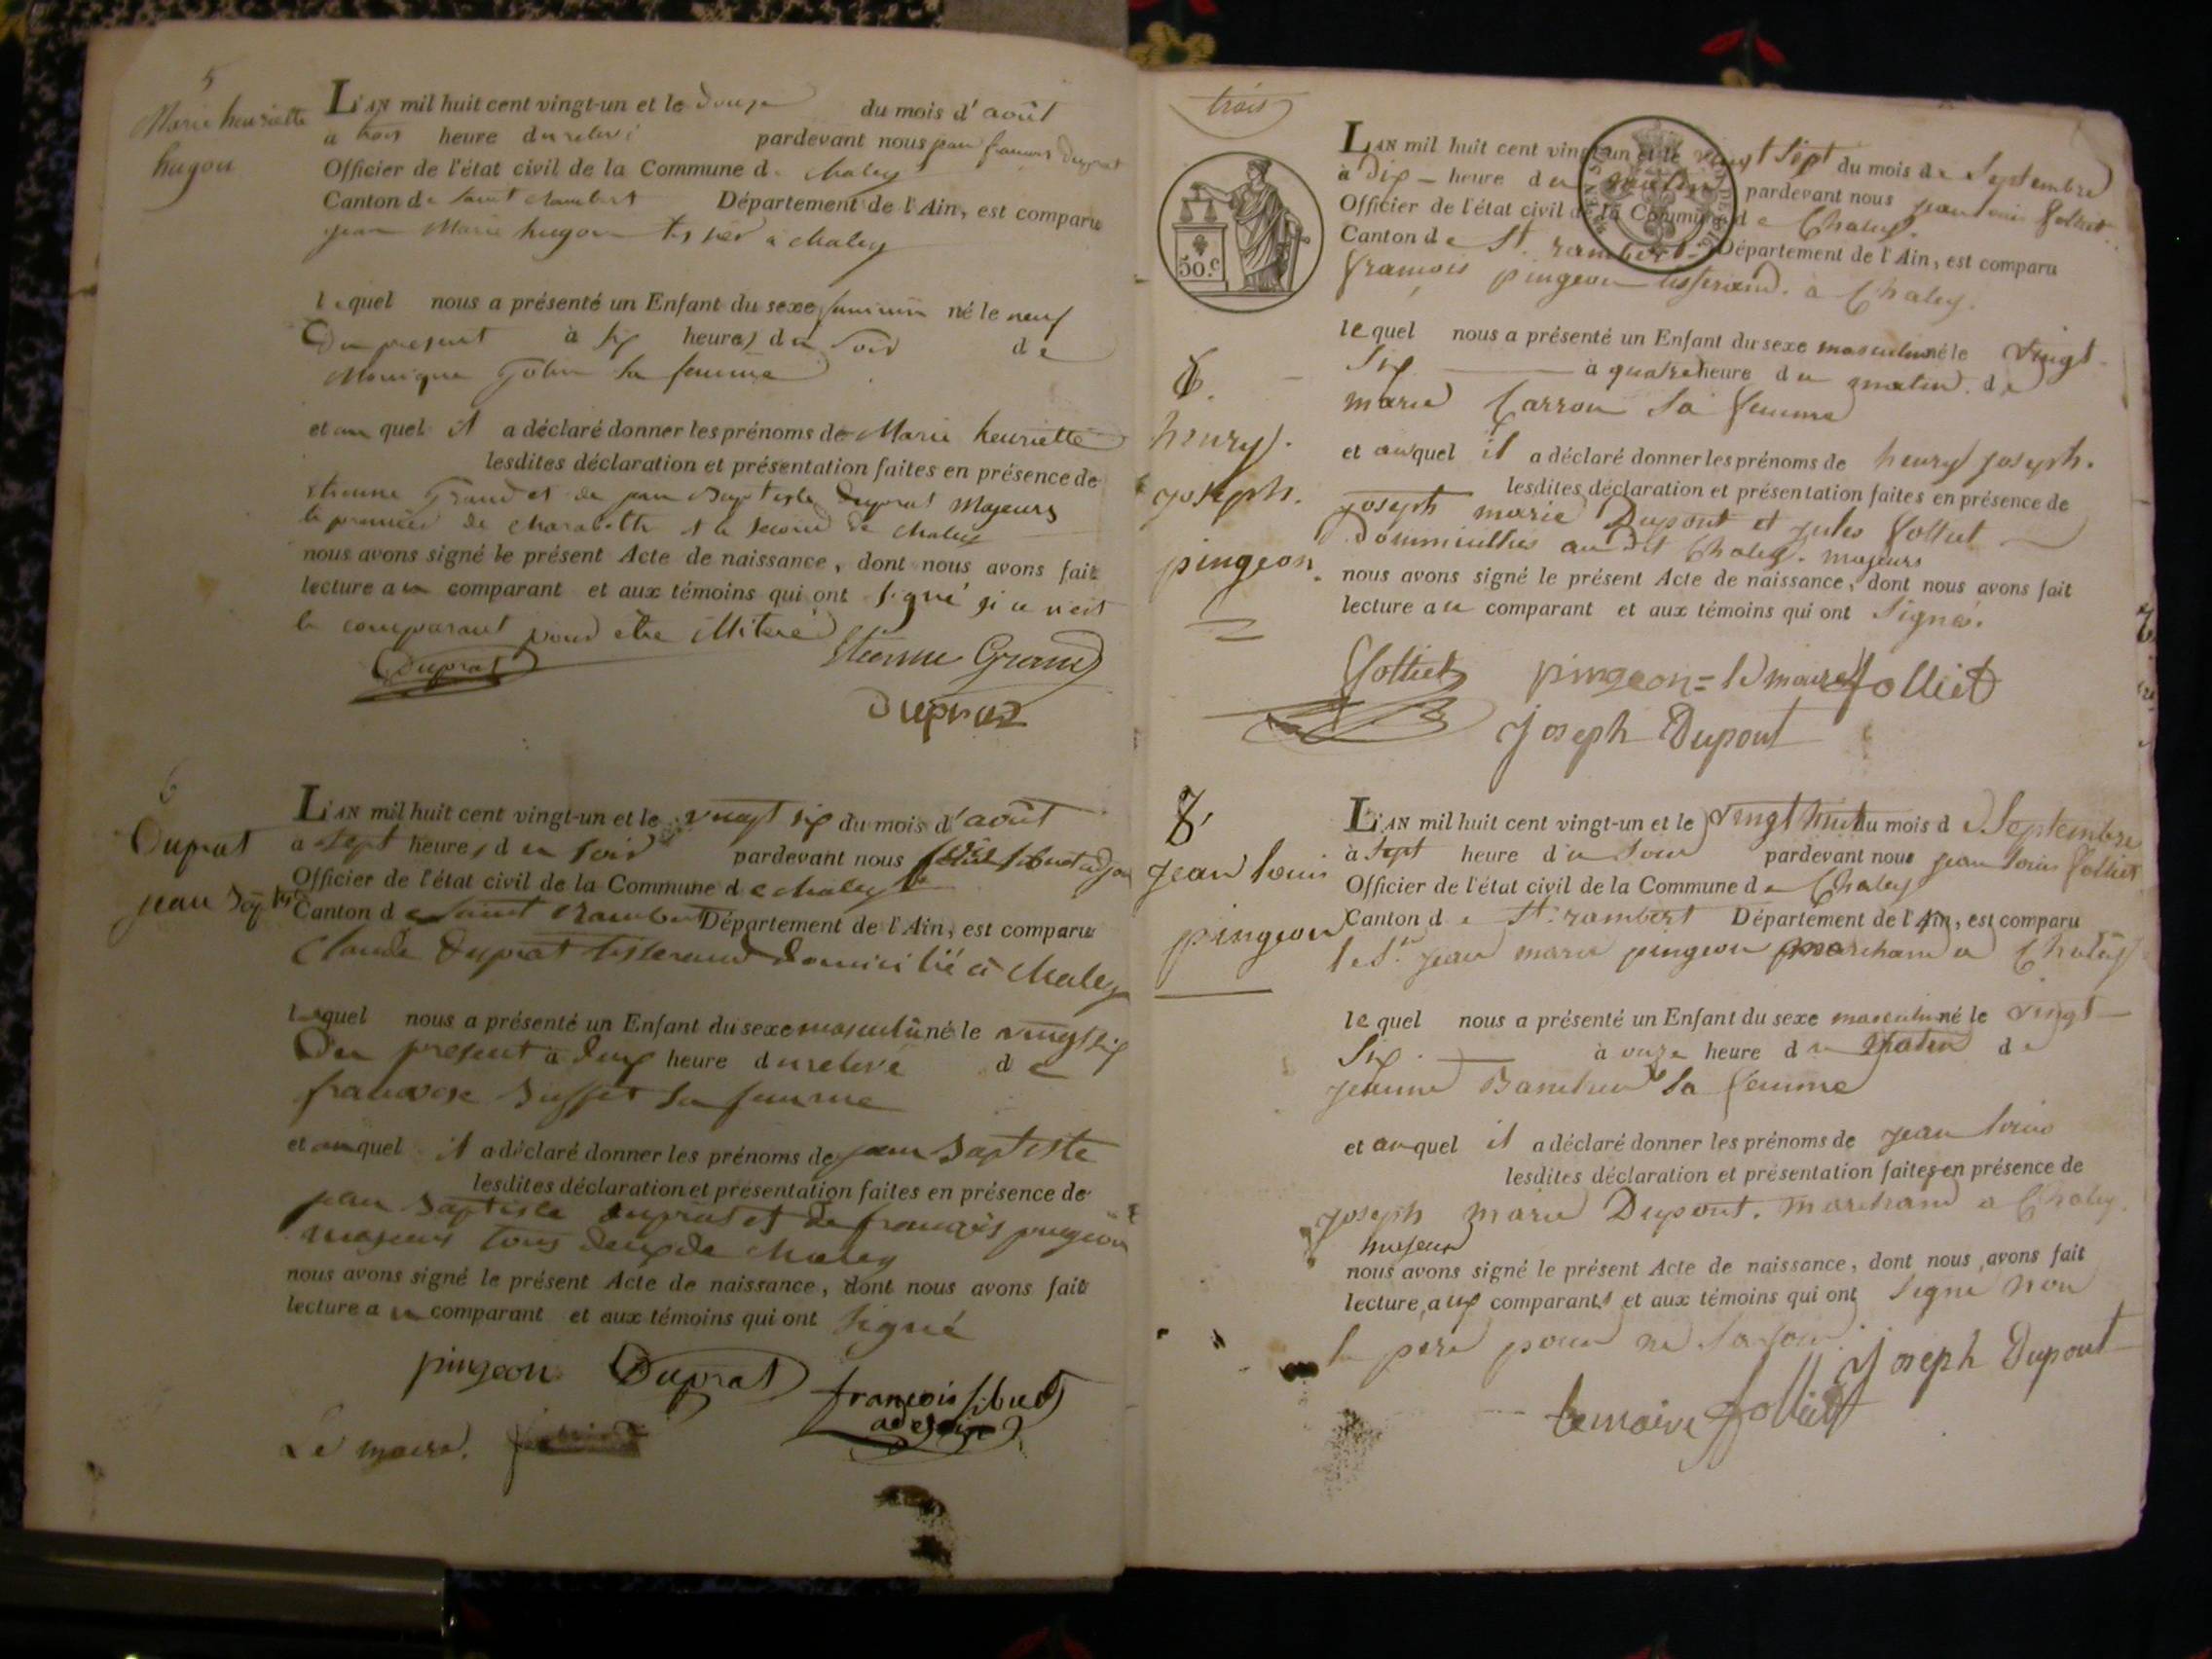 5
Marie henriette
hugon
L'AN mil huit cent vingt-un et le douze du mois d'août
a trois heure du relevé pardevant nous jean francois Duprat
Officier de l'état civil de la Commune de chaley
Canton de Saint Rambert Département de l'Ain, est comparu
jean Marie hugon à chaley
lequel nous a présenté un Enfant du sexe feminin né le neuf
Du present à six heures du soir de
Monique sa femme
et au quel il a déclaré donner les prénoms de Marie henriette
lesdites déclaration et présentation faites en présence de
etienne Grand et de jean Baptiste Duprat Majeurs
le premier de et le second de chaley
nous avons signé le présent Acte de naissance, dont nous avons fait
lecture au comparant et aux témoins qui ont signé si ce n'est
le comparant pour être illiteré
Duprat Etienne Grand
Dupraz
6
Duprat
jean Baptiste
L'AN mil huit cent vingt-un et le vingt six du mois d'août
a sept heures du soir pardevant nous
Officier de l'état civil de la Commune de chaley
Canton de Saint Rambert Département de l'Ain, est comparu
Claude Duprat tisserand domicilié à chaley
lequel nous a présenté un Enfant du sexe masculin né le vingt six
Du present à deux heure du relevé de
francoise sa femme
et auquel il a déclaré donner les prénoms de jean Baptiste
lesdites déclaration et présentation faites en présence de
jean Baptiste duprat et de françois pingeon
majeurs tous deux de chaley
nous avons signé le présent Acte de naissance, dont nous avons fait
lecture au comparant et aux témoins qui ont signé
pingeon Duprat françois sibuet
adjoint
Le maire.
trois
50.c
L'AN mil huit cent vingt-un et le vingt sept du mois de Septembre
à Dix heure du matin pardevant nous jean louis folliet
Officier de l'état civil de la Commune de Chaley.
Canton de St. rambert Département de l'Ain, est comparu
françois pingeon tisserand. à Chaley.
lequel nous a présenté un Enfant du sexe masculin né le vingt
six à quatre heure du matin. de
marie Carron sa femme
et auquel il a déclaré donner les prénoms de henry joseph.
lesdites déclaration et présentation faites en présence de
joseph marie Dupont et jules folliet
au dit Chaley. majeurs
nous avons signé le présent Acte de naissance, dont nous avons fait
lecture au comparant et aux témoins qui ont signé.
henry.
joseph.
pingeon.
folliet pingeon = le maire folliet
Joseph Dupont
8
jean louis
pingeon
L'AN mil huit cent vingt-un et le vingt huit du mois de Septembre
à sept heure du soir pardevant nous jean louis folliet
Officier de l'état civil de la Commune de Chaley
Canton de St. rambert Département de l'Ain, est comparu
le Sr. jean marie pingeon marchand a Chaley
lequel nous a présenté un Enfant du sexe masculin né le vingt
six. à onze heure du matin de
jeanne sa femme
et auquel il a déclaré donner les prénoms de jean louis
lesdites déclaration et présentation faites en présence de
joseph marie Dupont. marchand a Chaley.
majeur
nous avons signé le présent Acte de naissance, dont nous avons fait
lecture aux comparants et aux témoins qui ont signé non
le pere pour ne savoir
Joseph Dupont
le maire folliet